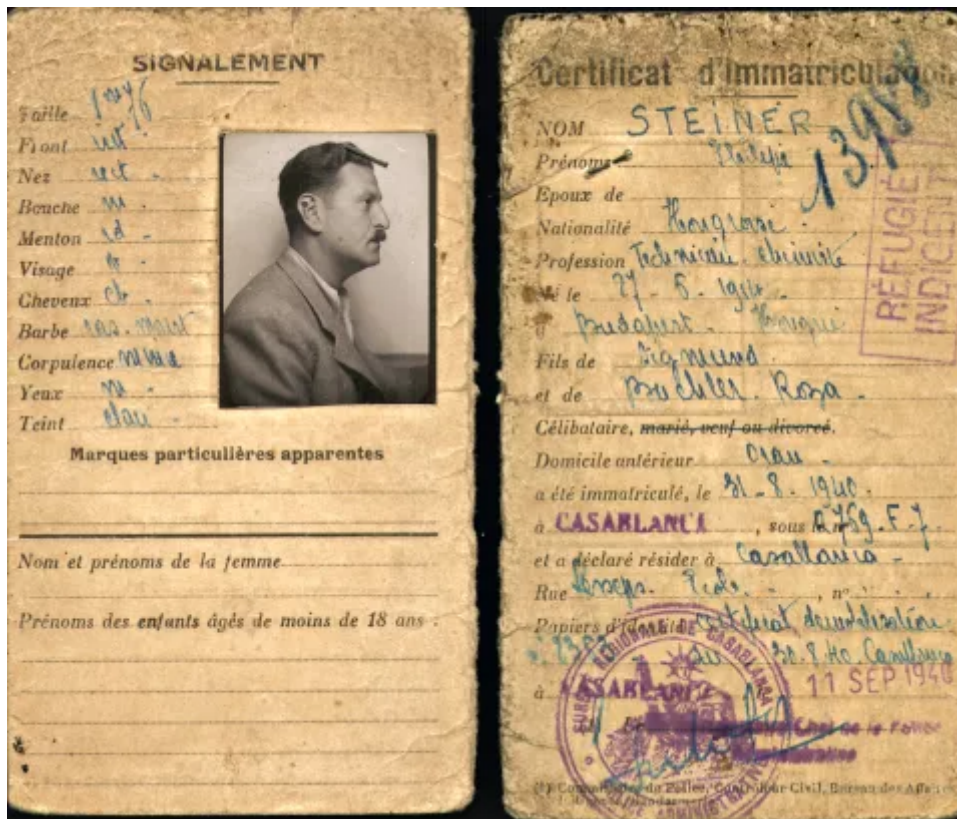 SIGNALEMENT
Taille 1m76
Front
Nez rect.
Bouche m.
Menton rd.
Visage
Cheveux ch.
Barbe ras.
Corpulence
Yeux m.
Teint clair
Marques particulières apparentes
Nom et prénoms de la femme
Prénoms des enfants âgés de moins de 18 ans :
Certificat d'Immatriculation
13988
NOM STEINER
Prénoms
Epoux de
Nationalité Hongroise
Profession Technicien - chimiste
Né le 27 - 5 - 1914
à Budapest - Hongrie
RÉFUGIÉ
INDIGENT
Fils de Sigmund
et de Buchler Roza
Célibataire, marié, veuf ou divorcé.
Domicile antérieur Oran
a été immatriculé, le 31 - 8 - 1940
à CASABLANCA , sous le n° 2769 - F - 7
et a déclaré résider à Casablanca
Rue , n°
Papiers d'identité Certificat démobilisation
du 30.8.40 Casablanca
à CASABLANCA 11 SEP 1940
Chef de la Police
SURETÉ RÉGIONALE DE CASABLANCA
(1) Commissaire de Police, Contrôleur Civil, Bureau des Affaires